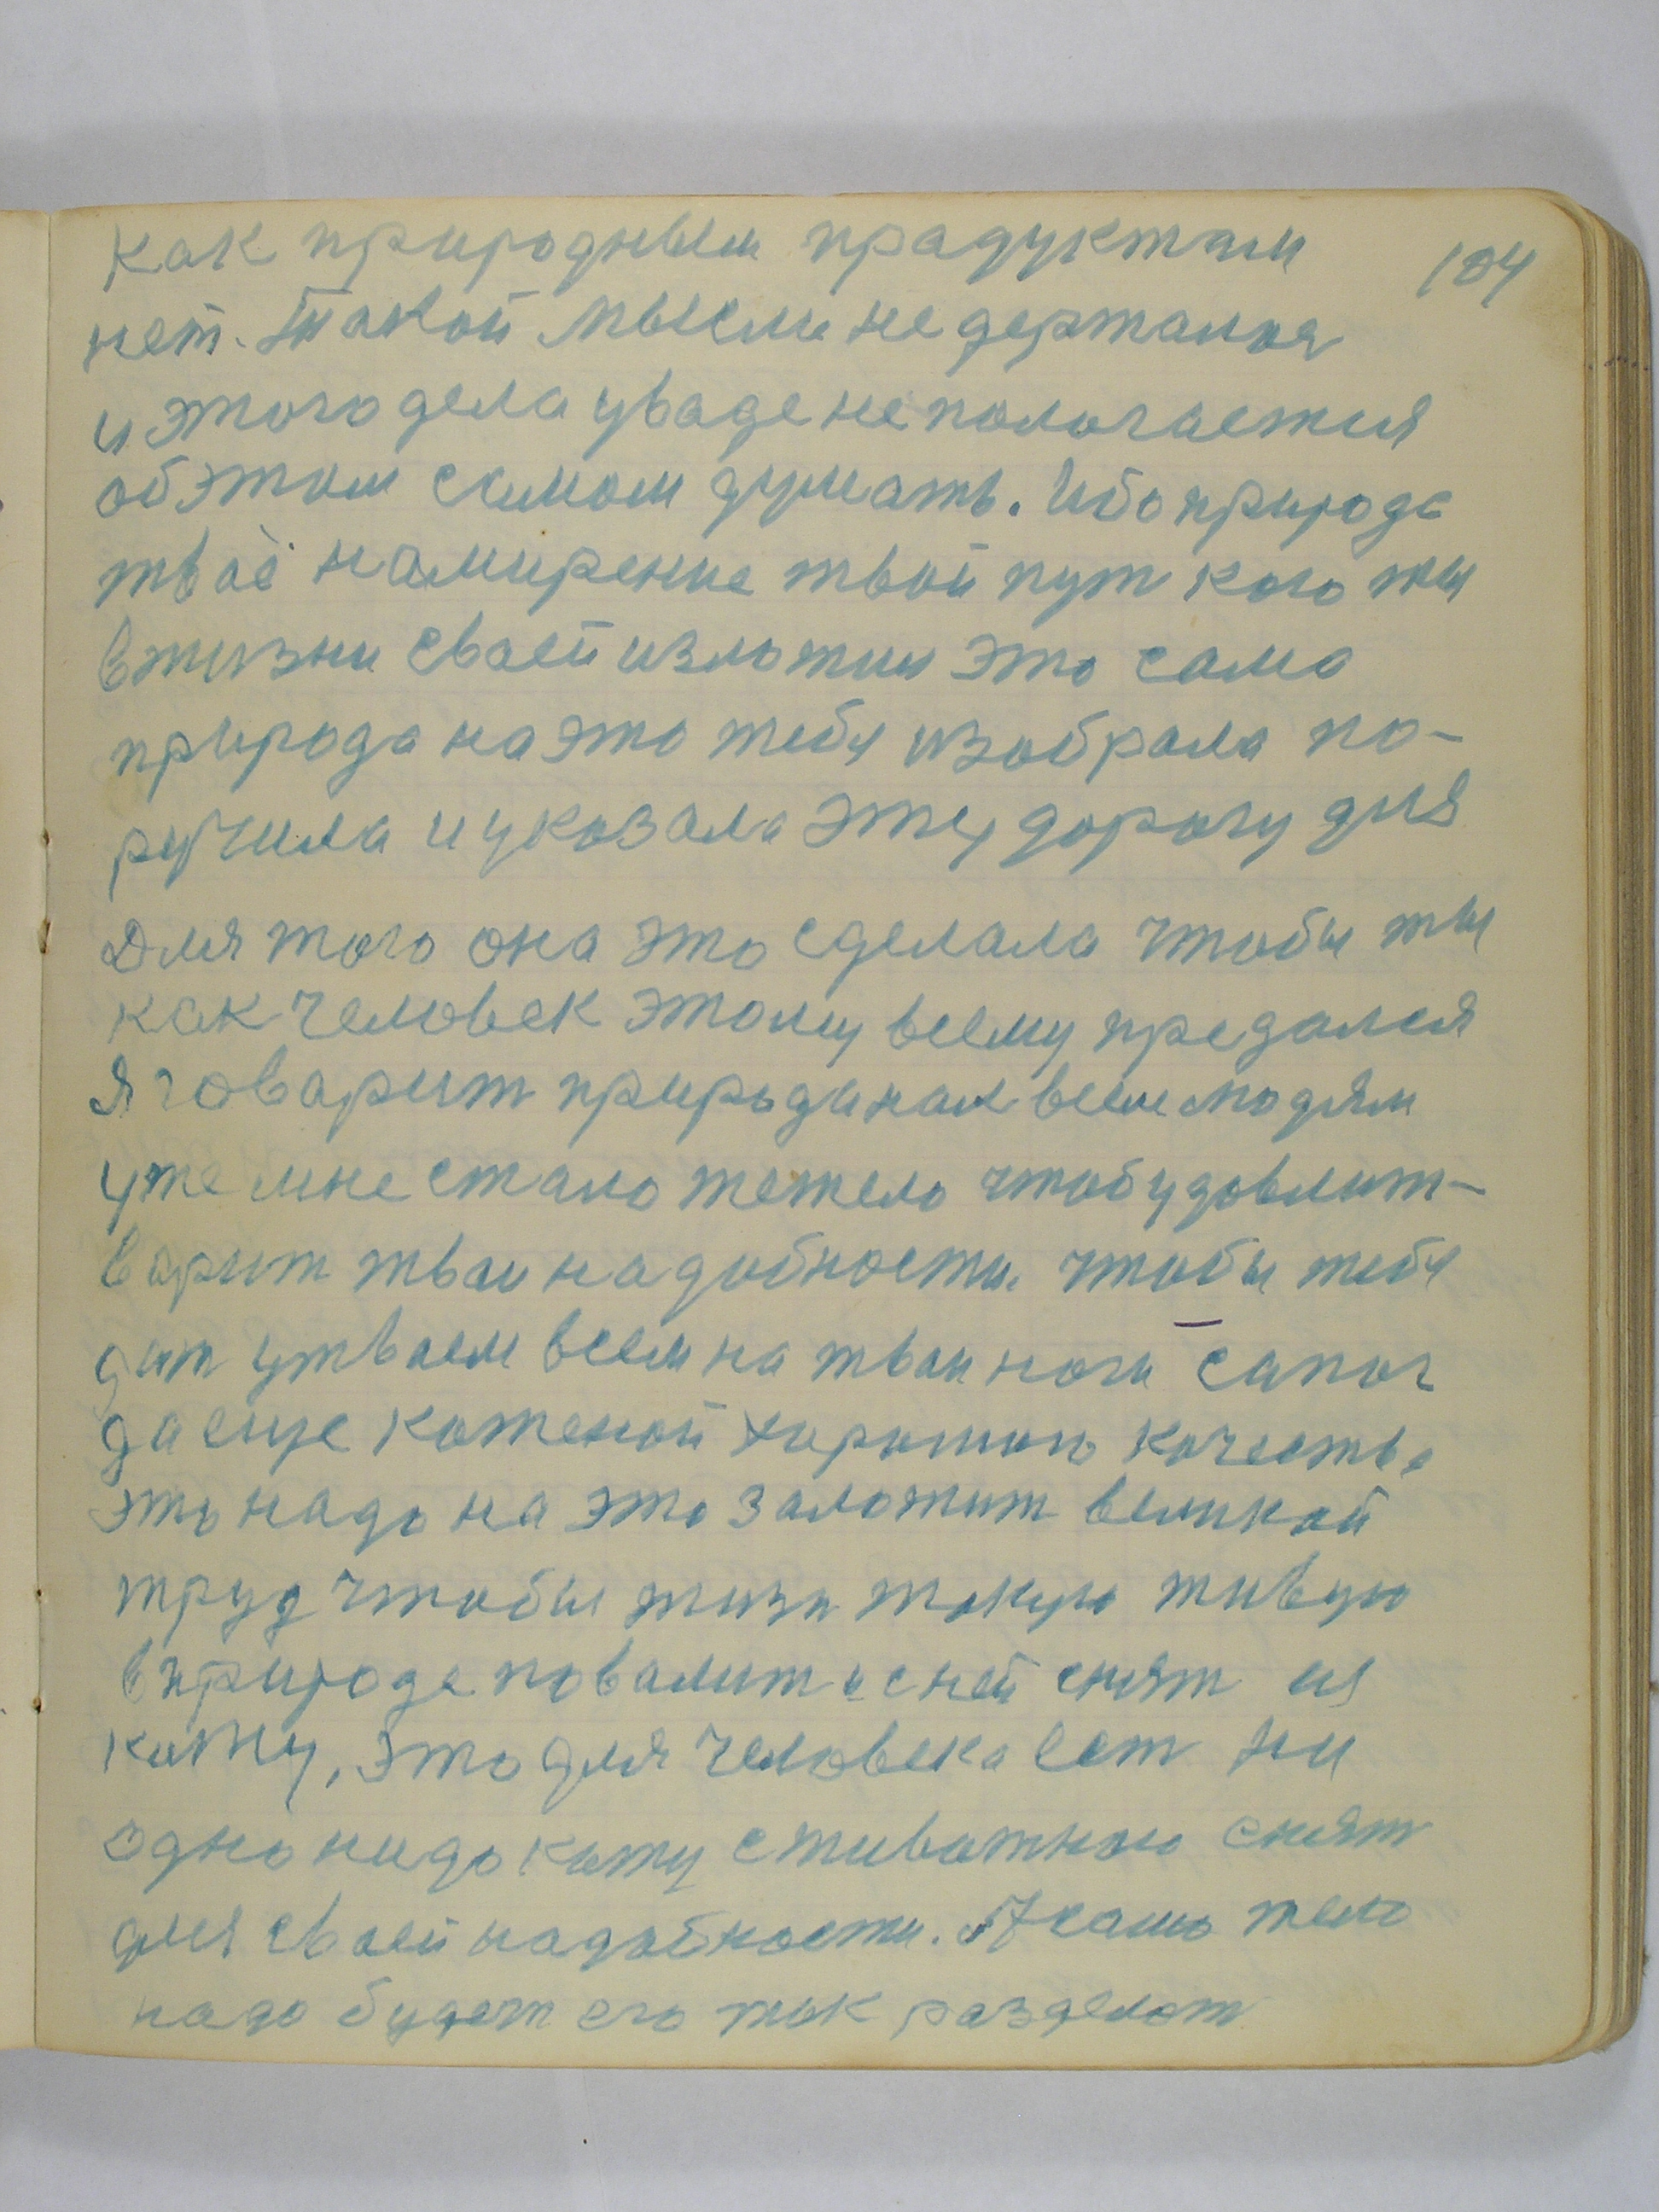 104
как природным прадуктам
нет. Такой мысли не держался
и этого дела уваде не пологается
об этом самом думать. Ибо природа
твое намирение твой пут кого ты
в жизни сваей изложил это сама
природа на это тебя изобрала по-
ручила и указала эту дорогу для
Для того она это сделала чтобы ты
как человек этому всему предался
Я говарит природа нам всем людям
уже мне стало тежело чтоб удовлит-
варит тваи надобности. чтобы тебя
дат утваем всем на тваи ноги сапог
да еще коженой хорошого качества
это надо на это заложит великай
труд чтобы жизн такую живую
в природе повалит и с ней снят ия
кожу, это для человека ест ни
одно надо кожу с животного снят
для сваей надобности. А само тело
надо будет его так разделат